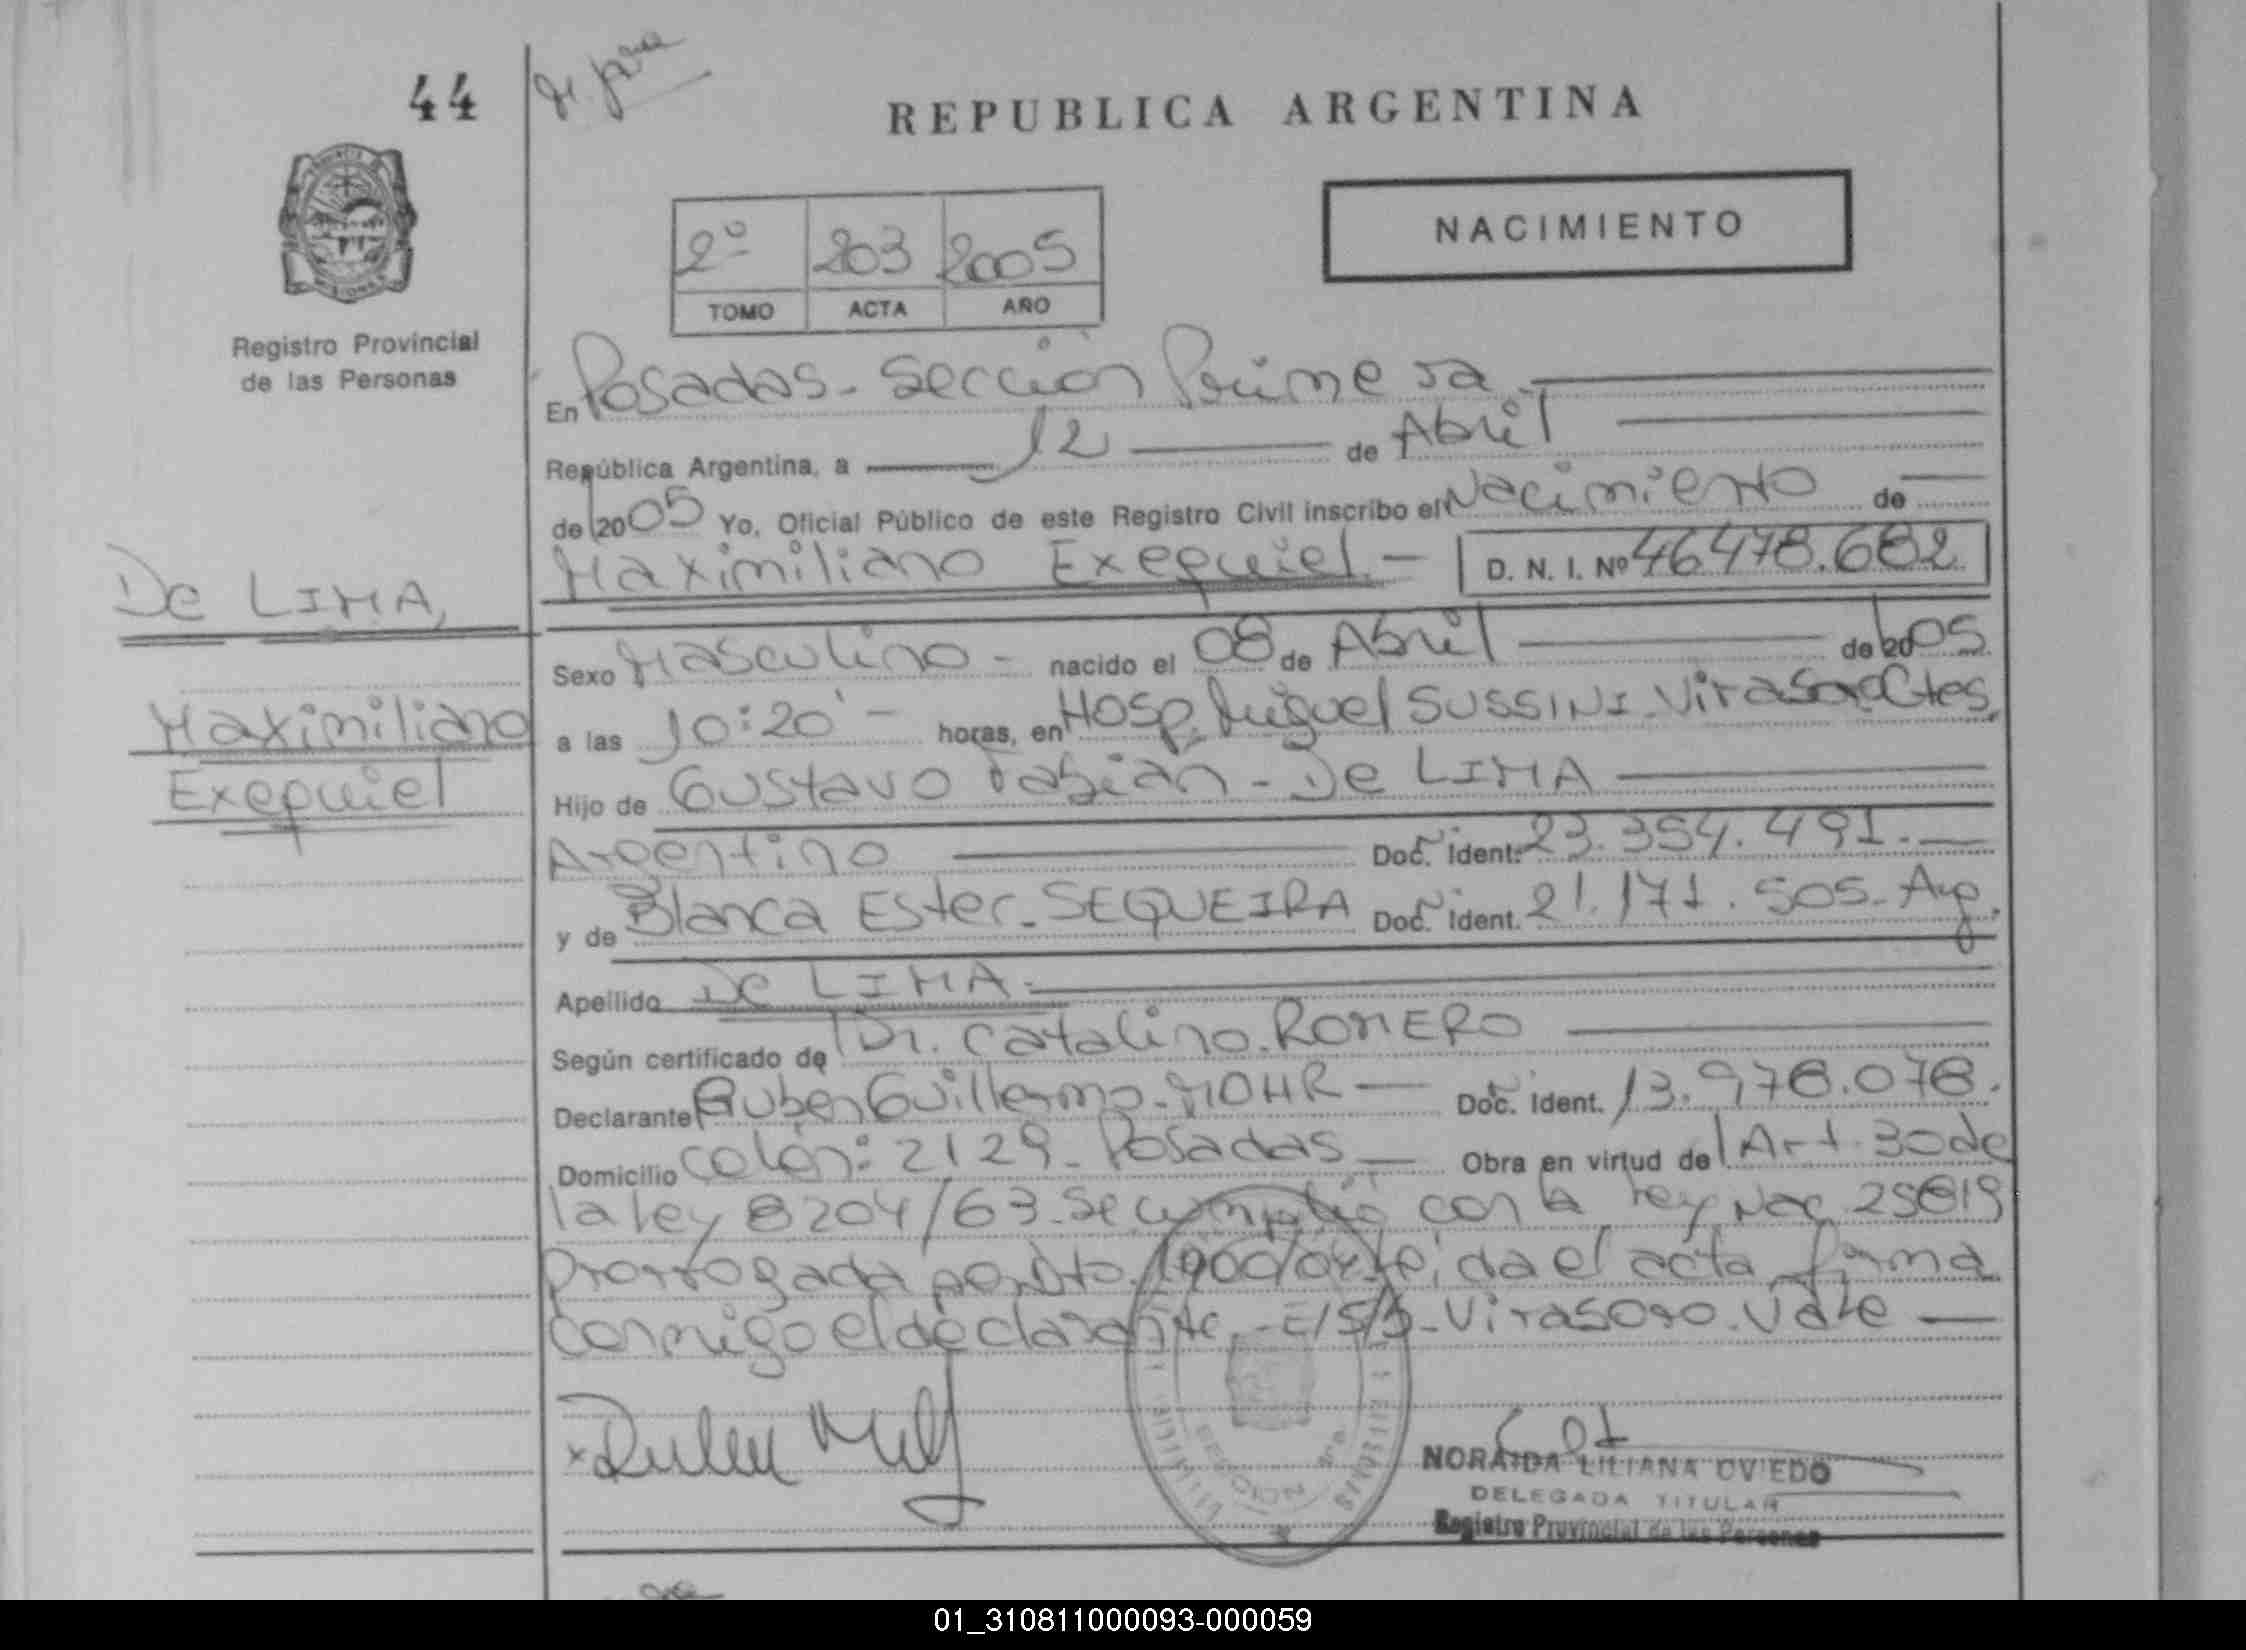 44
REPUBLICA ARGENTINA
NACIMIENTO
2º 203 2005
TOMO ACTA AÑO
Registro Provincial
de las Personas
En Posadas - Sección Primera
República Argentina, a 12 de Abril
de 2005 Yo, Oficial Público de este Registro Civil inscribo el Nacimiento de
Maximiliano Exequiel.- D. N. I. Nº 46478.682
De LIMA,
Maximiliano
Exequiel
Sexo Masculino - nacido el 08 de Abril de 2005
a las 10:20' - horas, en Hosp. Miguel SUSSINI - Virasoro Ctes.
Hijo de Gustavo Fabián - De LIMA
Argentino Doc. Ident. 23.354.491.-
y de Blanca Ester - SEQUEIRA Doc. Ident. 21.171.505 - Arg.
Apellido De LIMA -
Según certificado de Dr. Catalino ROMERO
Declarante Ruben Guillermo - MOHR - Doc. Ident. 13.978.078.
Domicilio Colón: 2129 - Posadas - Obra en virtud del Art. 30 de
la ley 8204/63 - Se cumplió con la ley Nac 25819
prorrogada por Dto. 1900/04 leída el acta firma
conmigo el declarante - E/S/B - Virasoro - Vale -
SECCION 1ra
NORAIDA LILIANA OVIEDO
DELEGADA TITULAR
Registro Provincial de las Personas
01_310811000093-000059